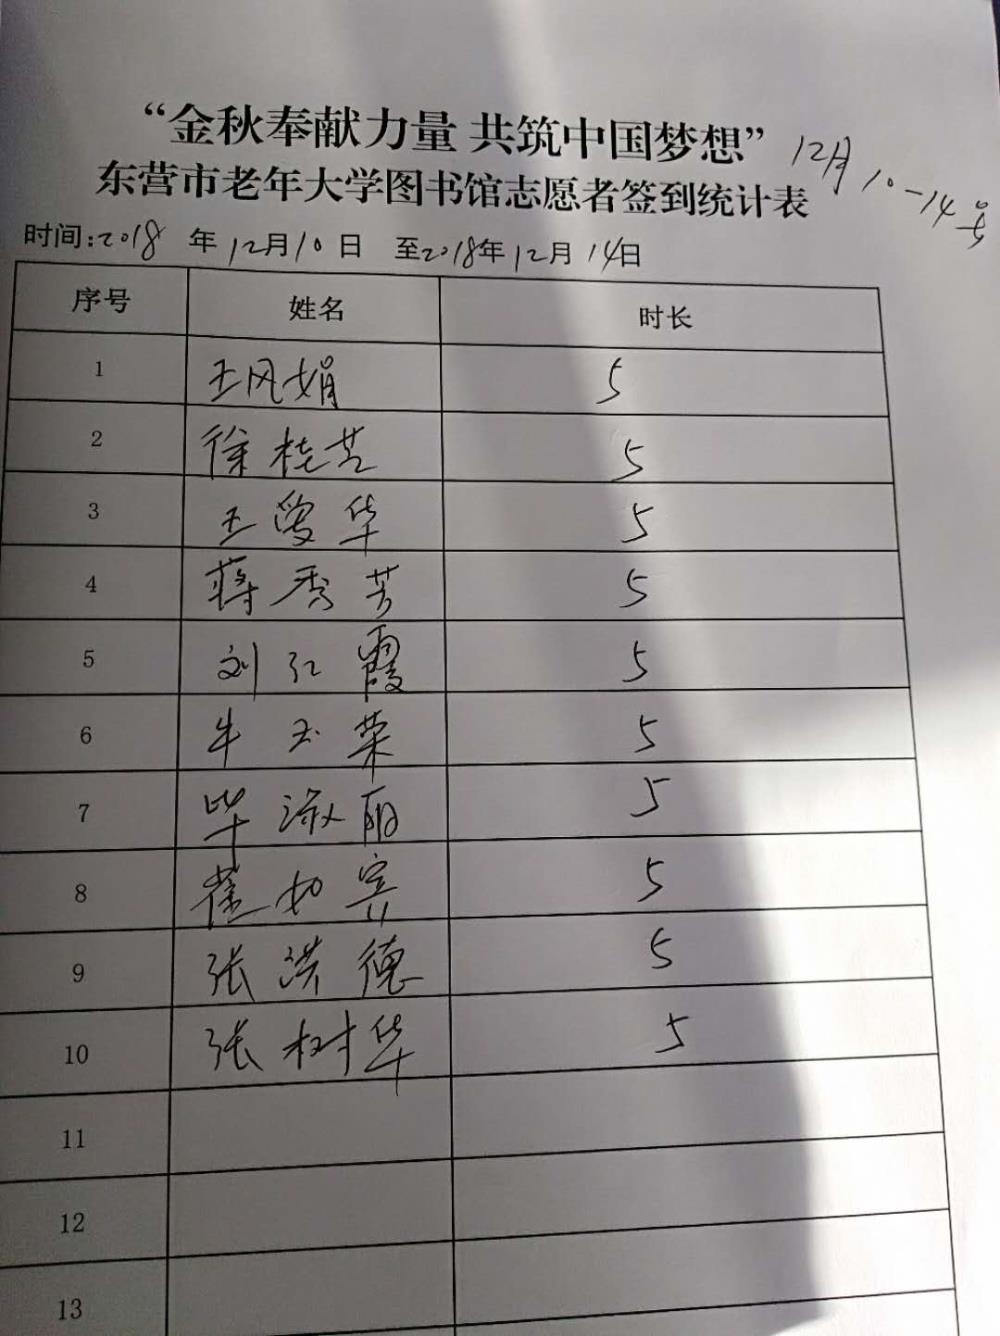 “金秋奉献力量 共筑中国梦想”
12月10-14号
东营市老年大学图书馆志愿者签到统计表
时间:2018 年 12月10 日 至2018年12月 14日
序号 姓名 时长
1 王风娟 5
2 徐桂芝 5
3 王爱华 5
4 蒋秀芳 5
5 刘红霞 5
6 牛玉荣 5
7 毕淑丽 5
8 如宾 5
9 张洪德 5
10 张树华 5
11
12
13